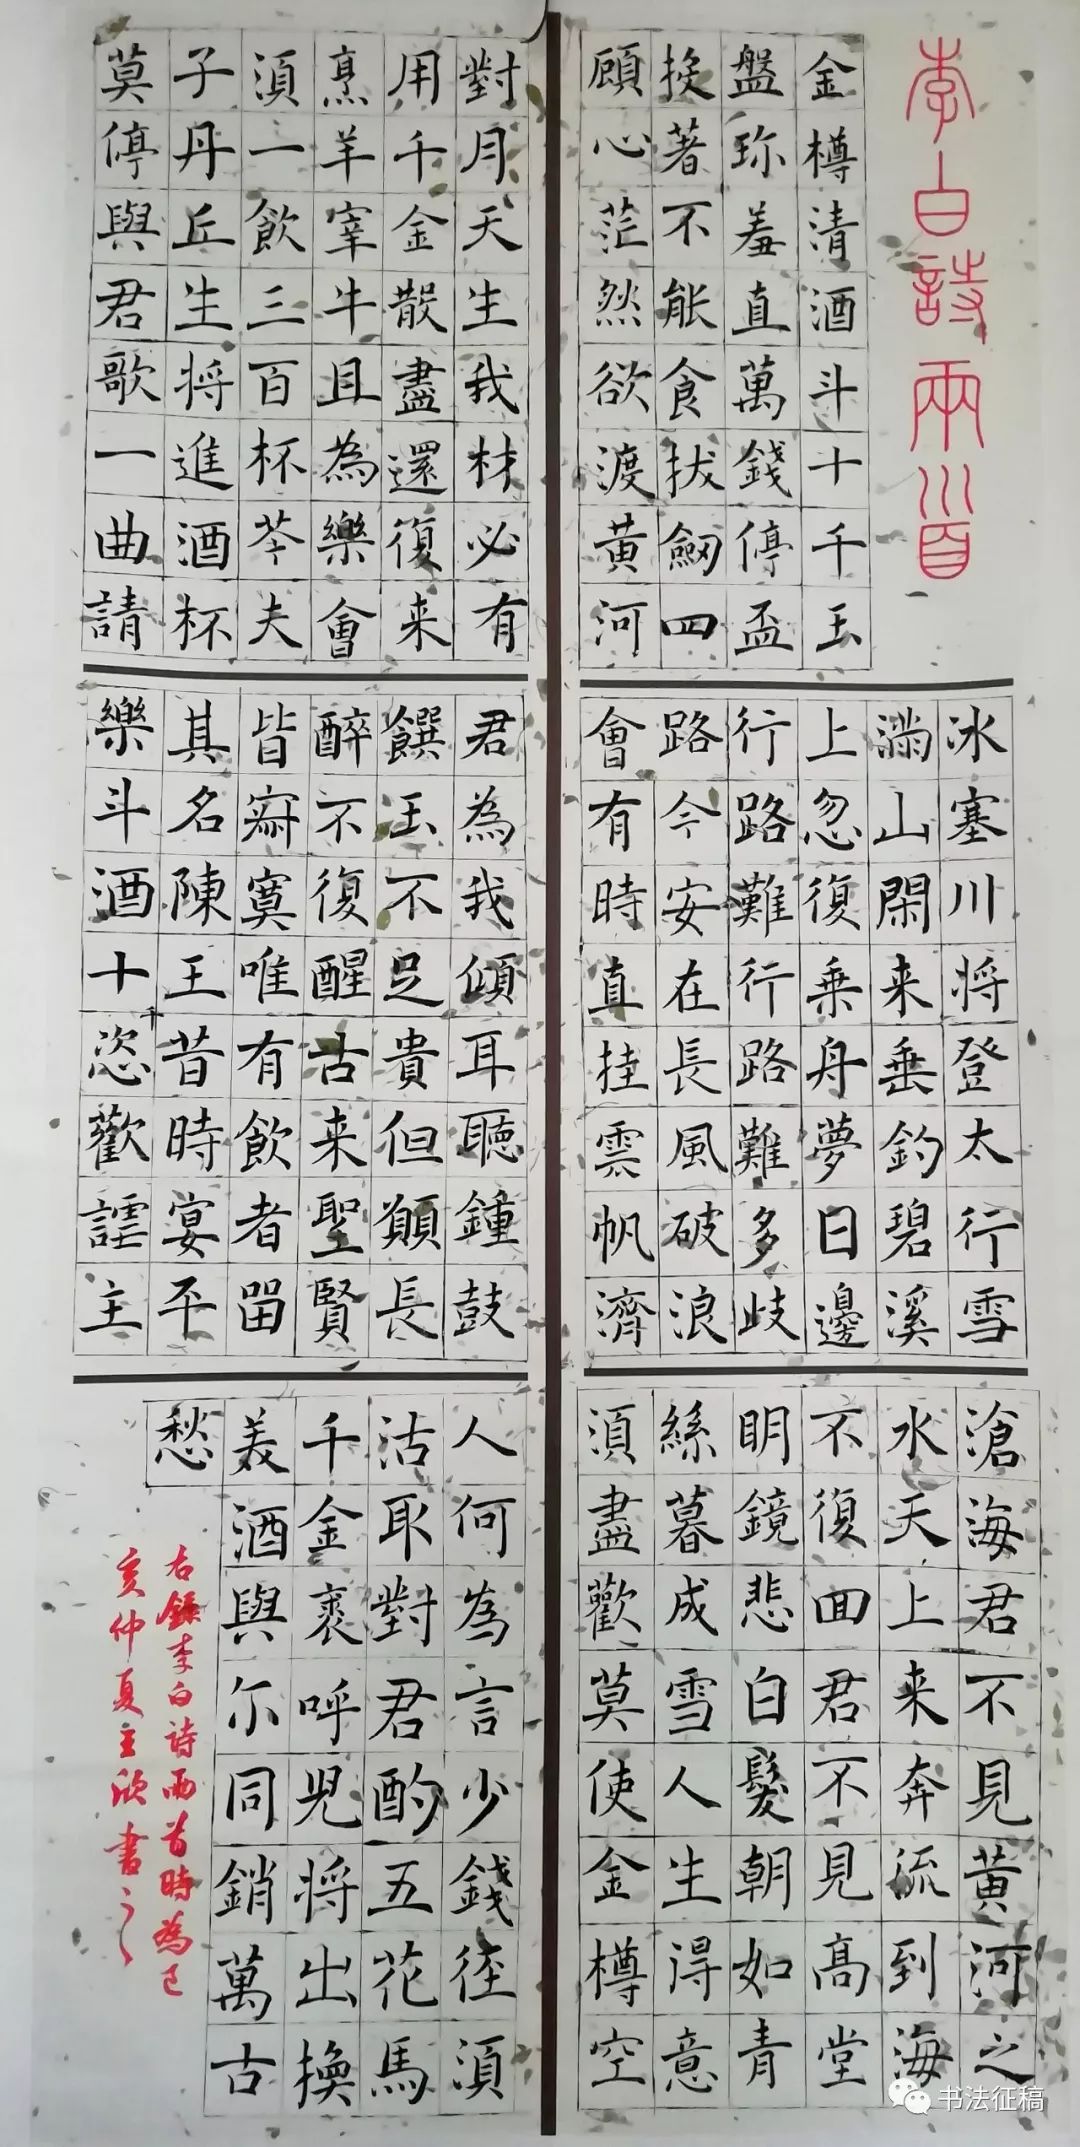 李白詩兩首
金樽清酒斗十千玉
盤珎羞直萬錢停盃
投著不能食拔劒四
顧心茫然欲渡黄河
冰塞川将登太行雪
滿山閑来垂釣碧溪
上忽復乗舟夢日邊
行路難行路難多歧
路今安在長風破浪
會有時直挂雲帆濟
滄海君不見黄河之
水天上来奔流到海
不復回君不見高堂
明鏡悲白髮朝如青
絲暮成雪人生得意
須盡歡莫使金樽空
對月天生我材必有
用千金散盡還復来
烹羊宰牛且為樂會
須一飲三百杯芩夫
子丹丘生将進酒杯
莫停與君歌一曲請
君為我傾耳聽鍾鼓
饌玉不足貴但願長
醉不復醒古来聖賢
皆寂寞唯有飲者留
其名陳王昔時宴平
樂斗酒十恣歡謔主
人何為言少錢徑須
沽取對君酌五花馬
千金裘呼兒将出換
美酒與尔同銷萬古
愁
右錄李白詩兩首時為己
亥仲夏主欣書之
书法征稿